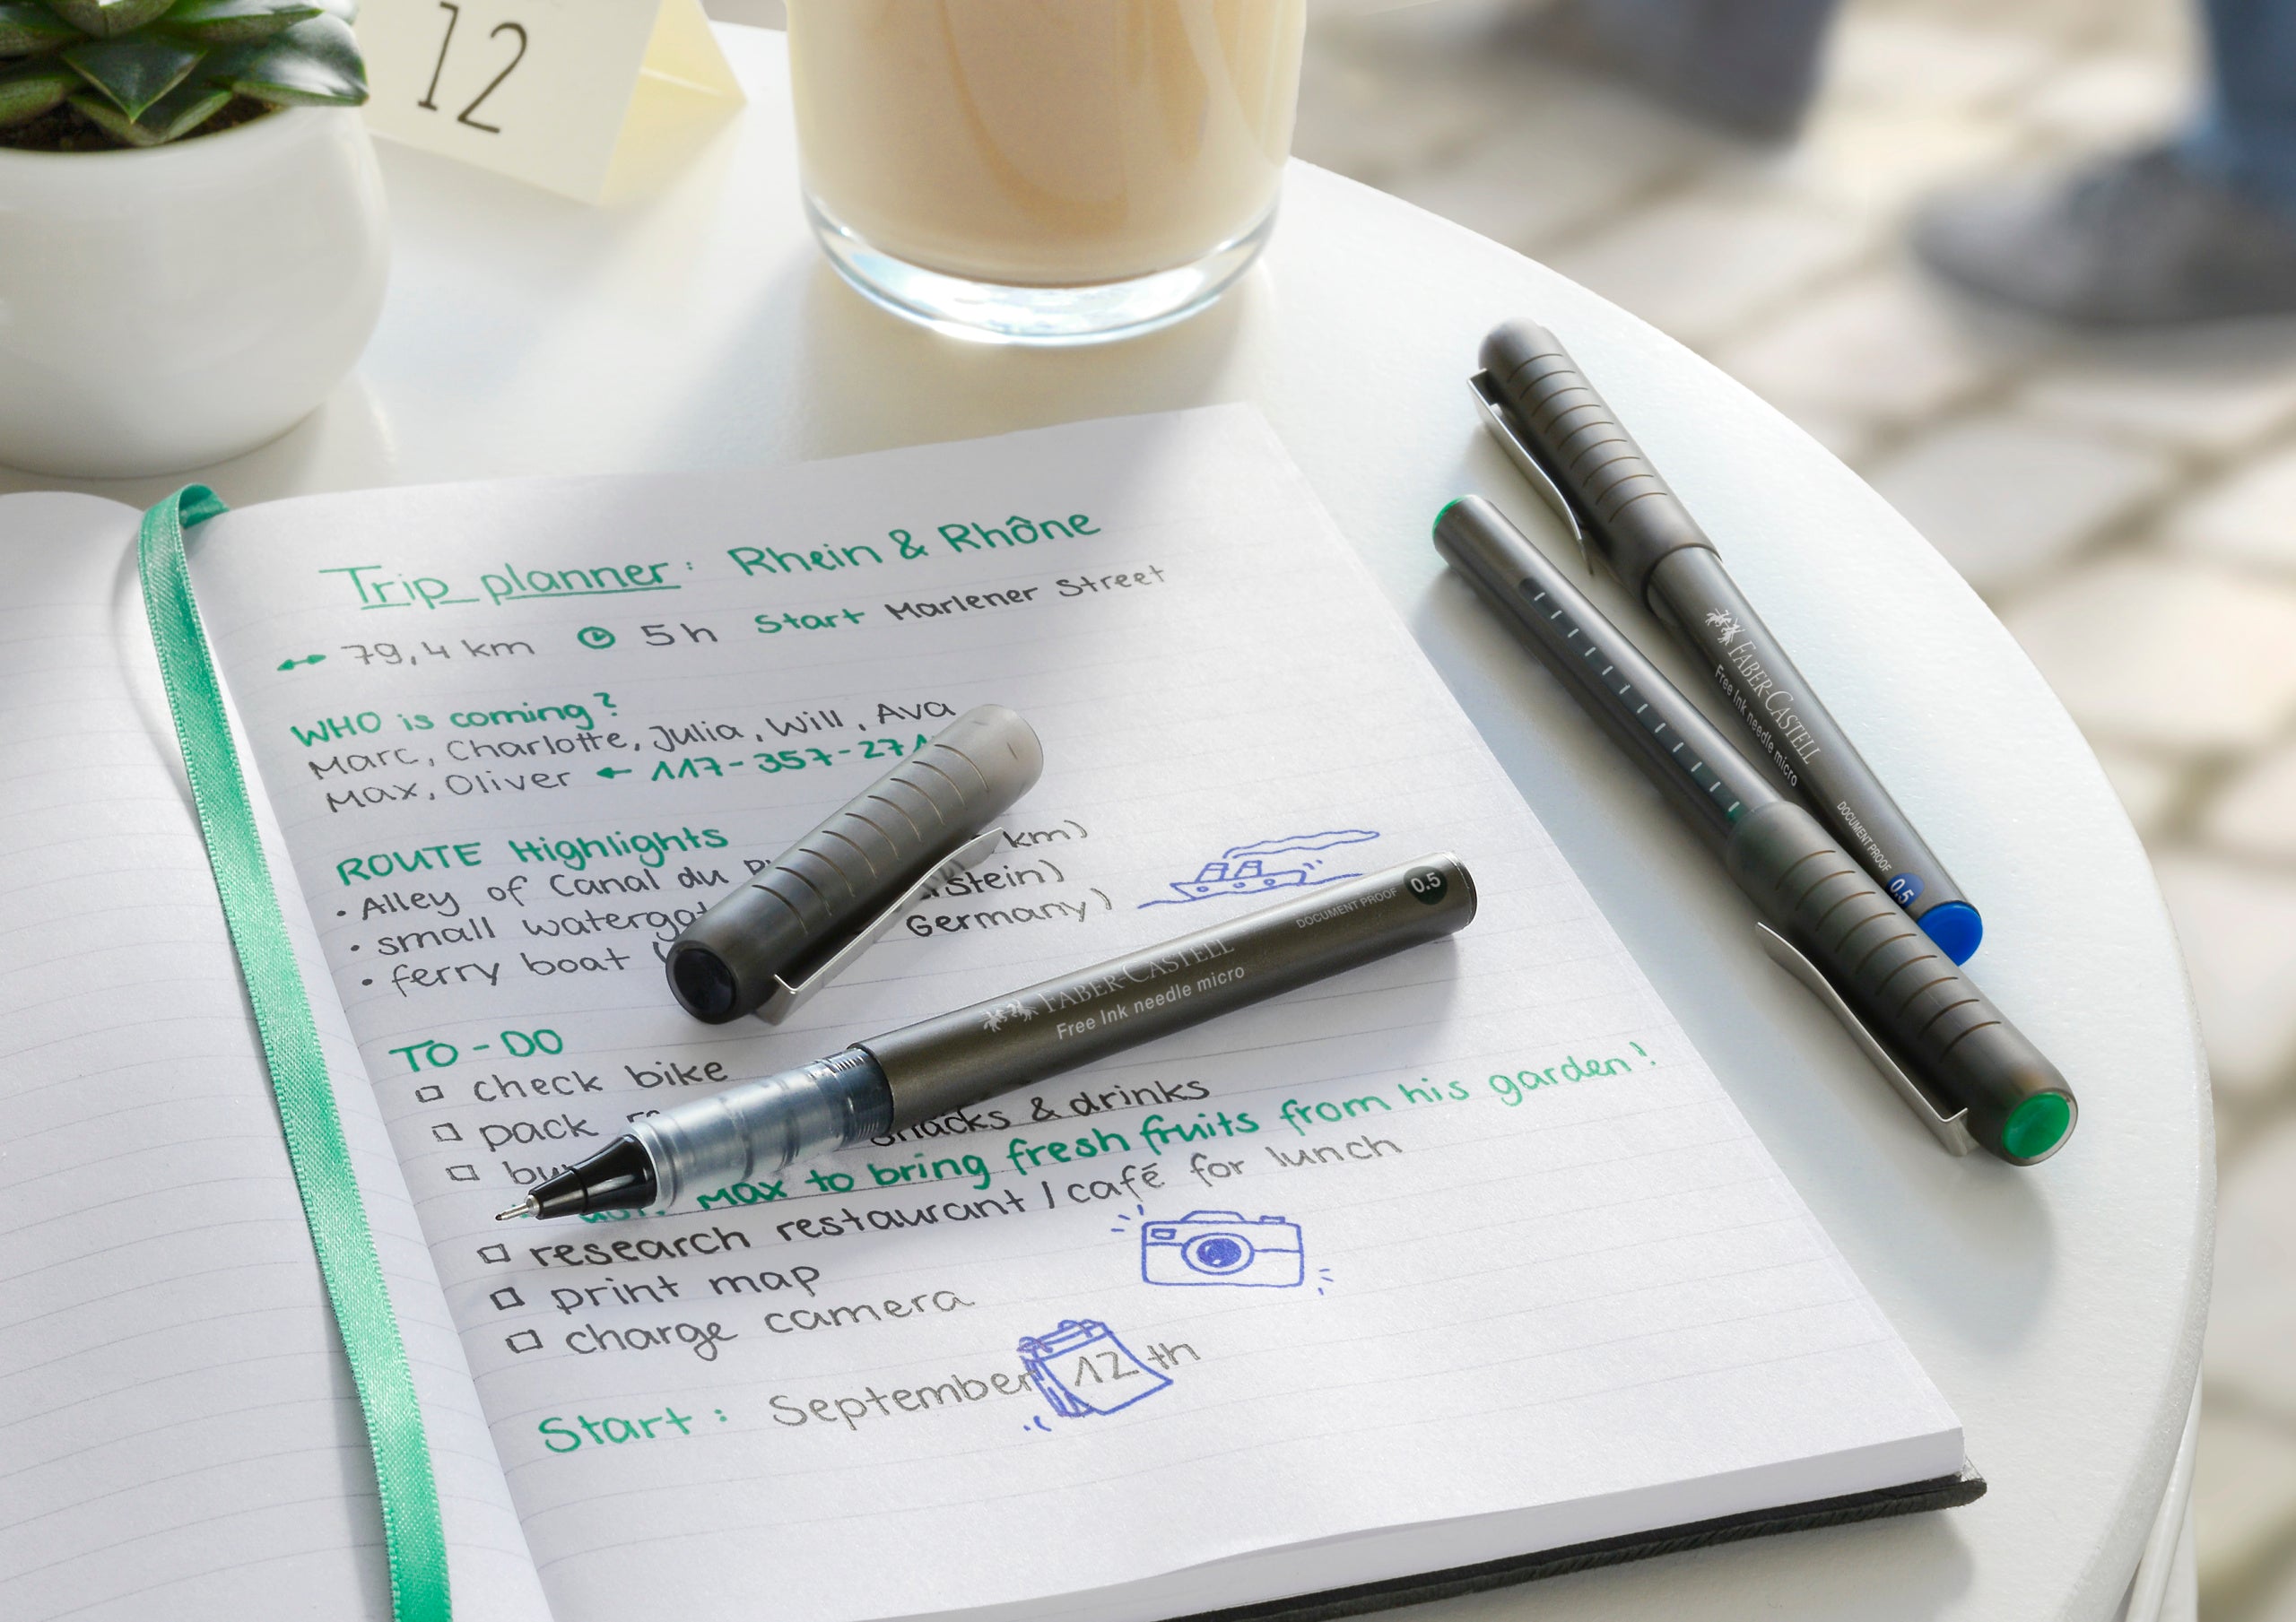 12
Trip planner: Rhein & Rhône
↔ 79,4 km 5h Start Marlener Street
WHO is coming?
Marc, Charlotte, Julia, Will, Ava
Max, Oliver ← 117-357-27
ROUTE Highlights
• Alley of Canal du km)
• small stein)
• ferry boat ( Germany)
TO-DO
check bike
pack
snacks & drinks
Max to bring fresh fruits from his garden!
research restaurant / café for lunch
print map
charge camera
Start: September 12th
FABER-CASTELL
Free Ink needle micro
DOCUMENT PROOF 0.5
FABER-CASTELL
Free Ink needle micro
DOCUMENT PROOF 0.5